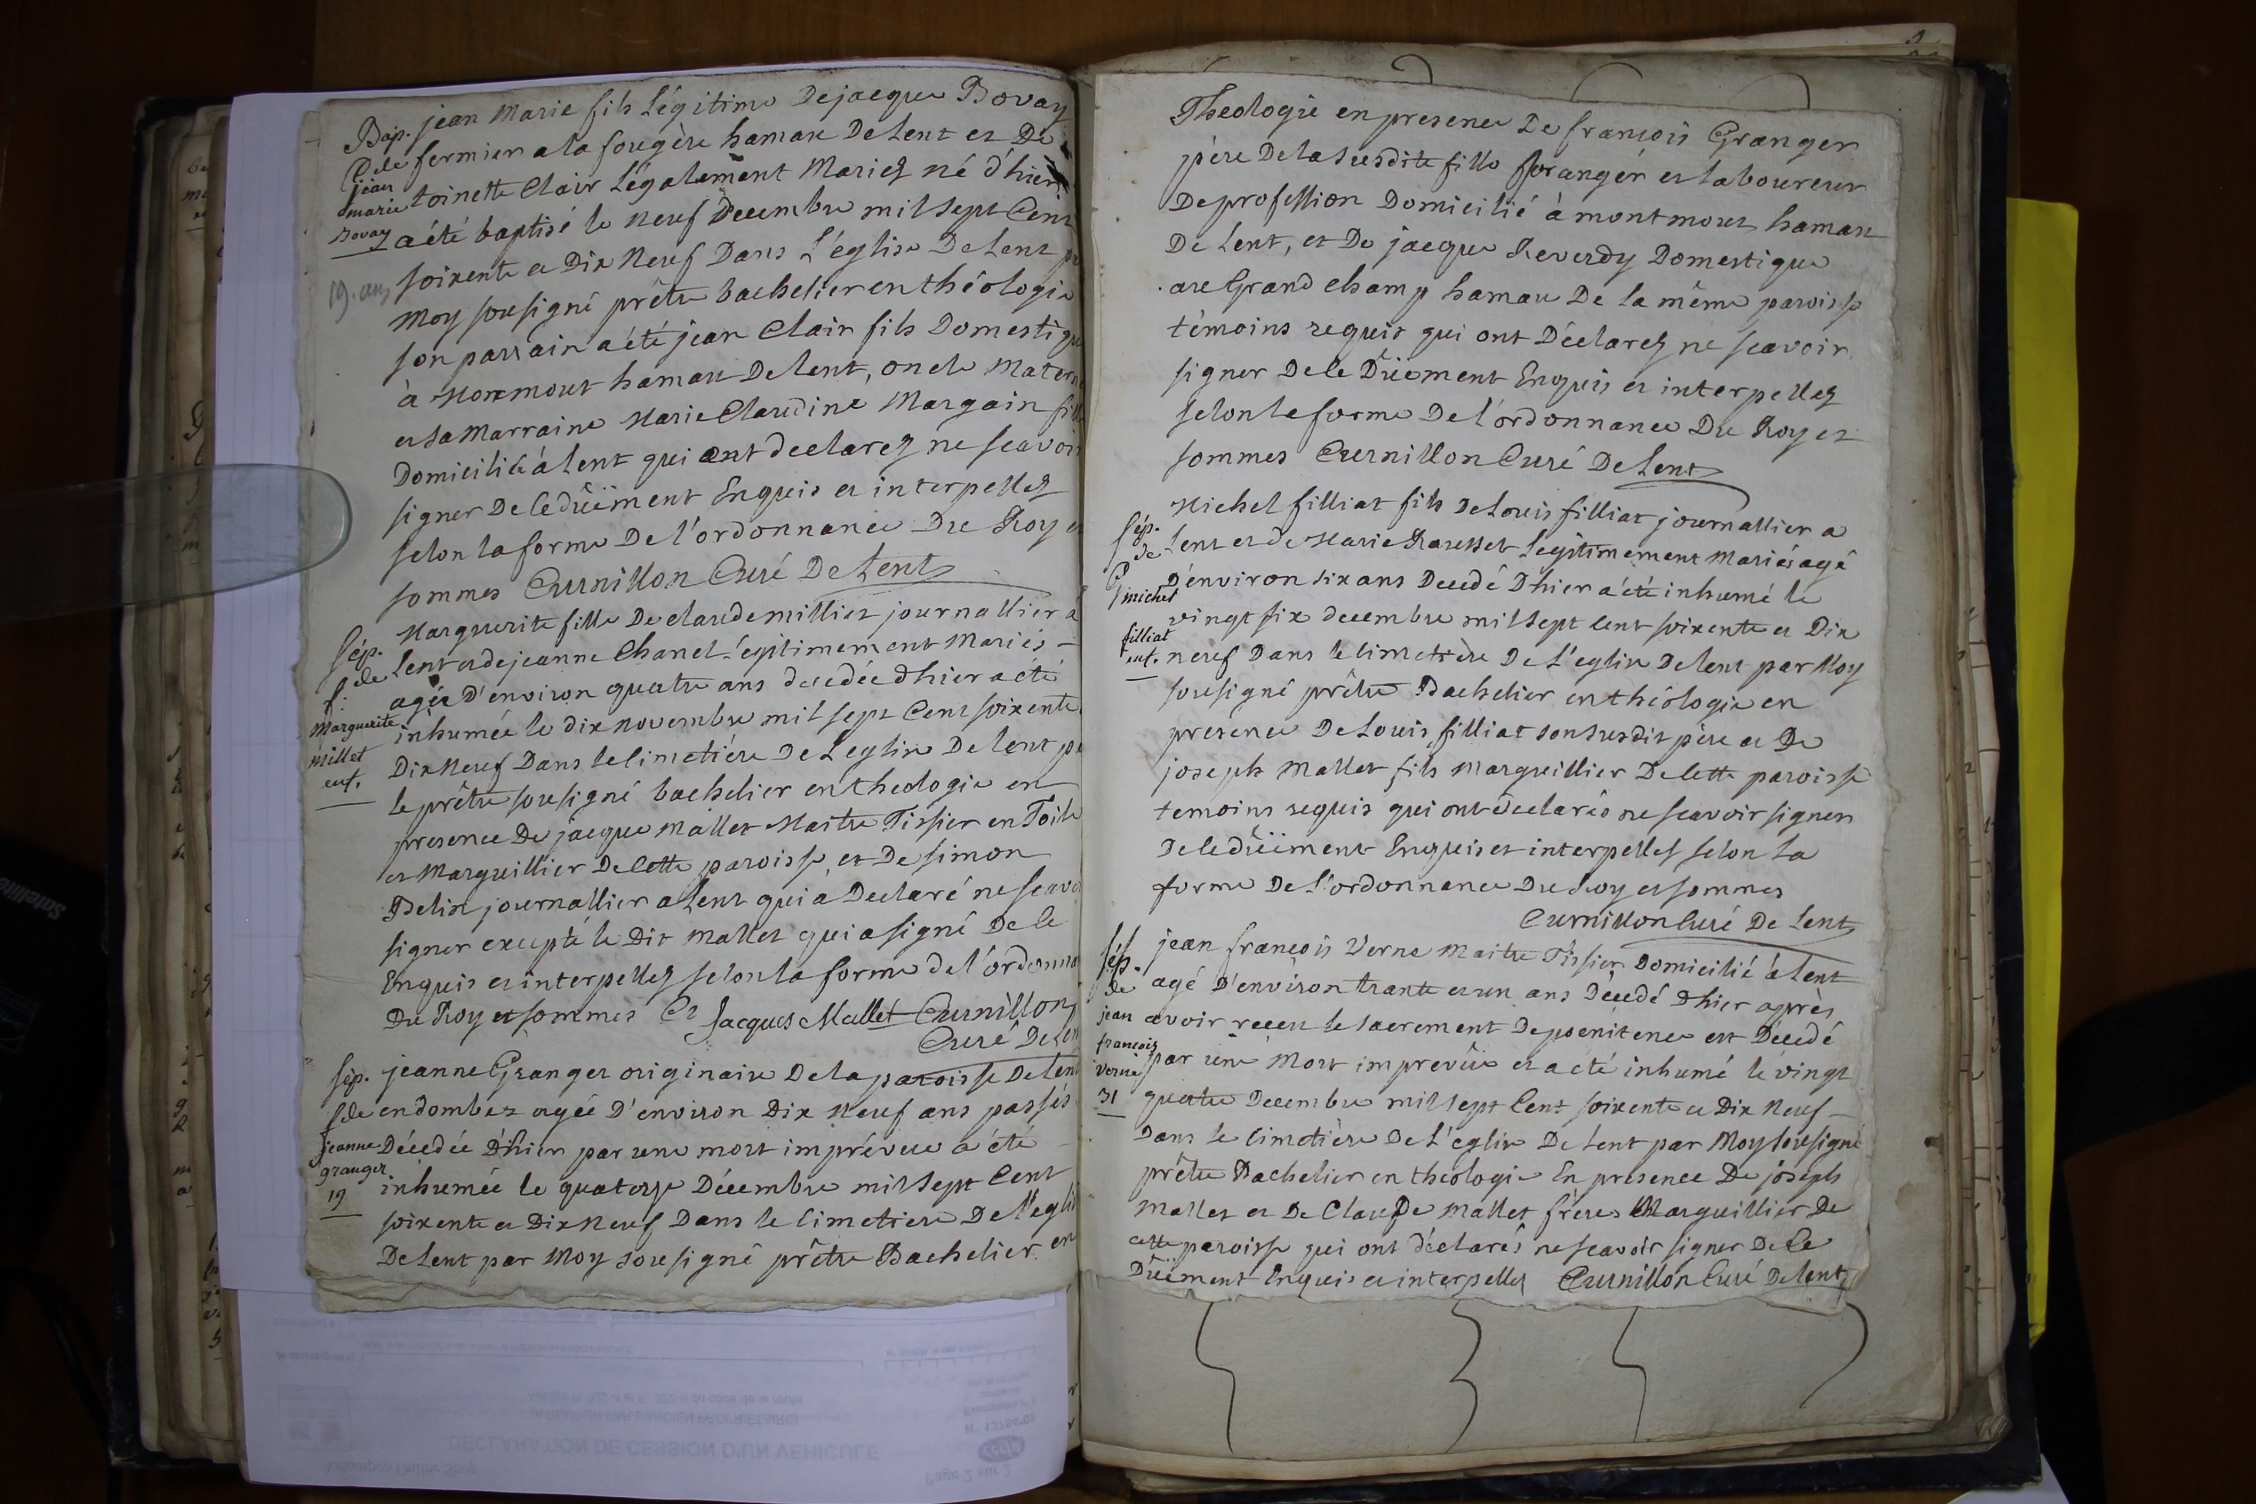 Bap. jean Marie fils Légitime De jacque Bovay
De fermier a la fougère hamau De Lent et De
jean marie Bovay
toinette Clair Légalement Mariez né d'hier
a été baptisé le neuf Decembre mil sept Cent
soixente et Dix Neuf Dans L'église De Lent
19. ans
Moy sousigné prêtre bachelier en théologie
son parrain a été jean Clair fils Domestique
à Monmout hamau De Lent, oncle Matern
et sa Marraine Marie Claudine Margain
Domiciliée à Lent qui ont declarez ne scavoir
signer De Ce dûëment Enquis et interpellez
selon la forme De l'ordonnance Du Roy et
sommes Curnillon Curé De Lent
Sép. de f. Marguerite millet enf.
Marguerite fille De claude milliet journallier à
Lent et de jeanne Chanel Légitimement Mariés
agée D'environ quatre ans decedée d'hier a été
inhumée le dix novembre mil sept Cent soixente
Dix Neuf Dans le Cimetière De L'eglise De Lent
le prêtre sousigné bachelier en theologie en
presence De jacque Mallet Maitre Tissier en Toile
et Marguillier De Cette paroisse, et De simon
Belin journallier a Lent qui a Declaré ne scavo
signer excepté le Dit Mallet qui a signé De Ce
Enquis et interpellez selon la forme de l'ordonna
Du Roy et sommes Jacques Mallet Curnillon
Curé De Len
Sép. de jeanne granger 19
jeanne Granger originaire De la paroisse De Lent
en dombez agée D'environ Dix Neuf ans passés
Décedée D'hier par une mort imprévue a été
inhumée le quatorze Décembre mil sept Cent
soixente et Dix Neuf Dans le Cimetiere De l'egli
De Lent par Moy sousigné prêtre Bachelier en
Theologie en presence De francois Granger
père De la susdite fille et laboureur
De profession Domicilié à montmout hamau
De Lent, et De jacque Reverdy Domestique
au Grand champ hamau De la même paroisse
témoins requis qui ont Déclarez ne scavoir
signer De Ce Dûëment Enquis et interpellez
selon la forme De l'ordonnance Du Roy et
sommes Curnillon Curé De Lent
Sép. de michel filliat enf.
Michel filliat fils De Louis filliat journallier a
Lent et de Marie Rousset Legitimement Mariés agé
D'environ six ans Decedé D'hier a été inhumé le
vingt six decembre mil sept cent soixente et Dix
neuf Dans le cimetière De L'eglise De Lent par Moy
sousigné prêtre Bachelier en théologie en
presence De Louis filliat son susdit père et De
joseph Mallet fils Marguillier De Cette paroisse
temoins requis qui ont declarés ne scavoir signer
De Ce dûëment Enquis et interpellez selon la
forme De l'ordonnance Du Roy et sommes
Curnillon Curé De Lent
Sép. de jean francois verne 31
jean francois Verne Maitre Tissier Domicilié à Lent
agé D'environ trante et un ans Décedé D'hier après
avoir receu le sacrement De poenitence est Décedé
par une Mort imprevûe et a été inhumé le vingt
quatre Decembre mil sept Cent soixente et Dix Neuf
Dans le Cimetière De L'eglise De Lent par Moy sousigné
prêtre Bachelier en theologie En presence De joseph
Mallet et De Claude Mallet frères Marguillier De
cette paroisse qui ont déclarés ne scavoir signer De Ce
Dûëment Enquis et interpellez Curnillon Curé De Lent
DÉCLARATION DE CESSION D'UN VÉHICULE